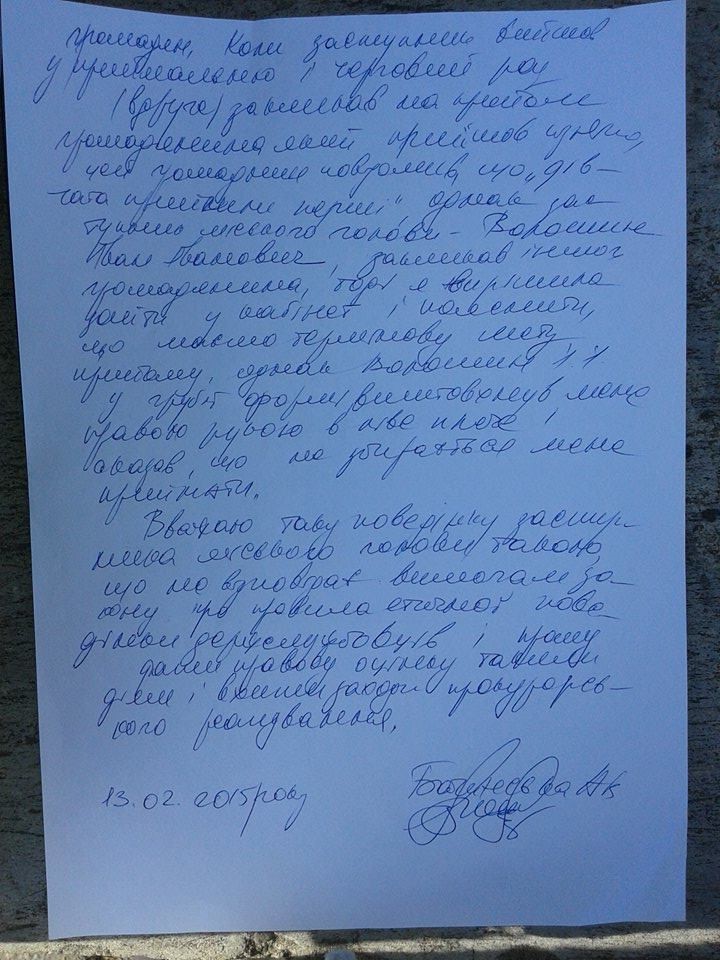 громадян. Коли заступник вийшов
у приймальню і черговий раз
(вдруге) закликав на прийом
громадянина який прийшов пізніше,
цей громадянин повідомив, що „дів-
чата прийшли перші" однак зас-
тупник міського голови – Волошин
Іван Іванович, закликав іншого
громадянина, тоді я вирішила
зайти у кабінет і пояснити,
що маємо термінову мету
прийому, однак Волошин І.І
у грубій формі виштовхнув мене
правою рукою в ліве плече і
сказав, що не збирається мене
приймати.
Вважаю таку поведінку заступ-
ника міського голови такою,
що не відповідає вимогам за-
кону про правила етичної пове-
дінки держслужбовців і прошу
дати правову оцінку таким
діям і вжити заходи прокурорсь-
кого реагування.
13.02.2015 року